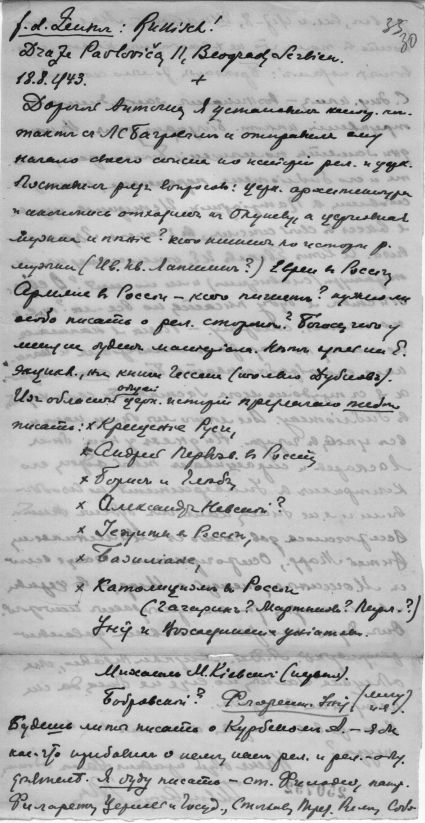 f. d. Zensur: Russisch! 35 30
Draže Pavlovića 11, Beograd, Serbien.
18.8.1943. +
Дорогой Антоний, Я установил кон
такт с АСБагрецем и отправил ему
начало своего списка по истории рел. и церк.
Поставил ряд вопросов: церк. архитектура
и иконопись отходит к Окуневу, а церковная
музыка и пение? кто пишет по истори р.
музыки (Ив. Ив. Лапшин?) Евреи в России
Армяне в России – кто пишет? нужно ли
особо писать о рел. стороне? Боюсь, что у
меня не будет материала. Нет ни Е.
Энцикл., ни книги Гессена (только Дубнов).
Из области общей церк. истории предлагаю тебе
писать: × Крещение Руси,
× Андрей Первозв. в России,
× Борис и Глеб,
× Александр Невский?
× Иезуиты в России,
× Базилиане,
× Католицизм в России
(Гагарин? Мартынов? Перл.?)
Уния и Воссоединение униатов.
Михаил М. Киевский (первый).
Бобровский? Флорент. Уния
Будешь ли ты писать о Курбском А. – я бы
кое-что прибавил о нем, как рел. и рел.-
деятеле. Я буду писать – ст. Филофей, патр.
Филарет, Церковь и Госуд., Стоглав,